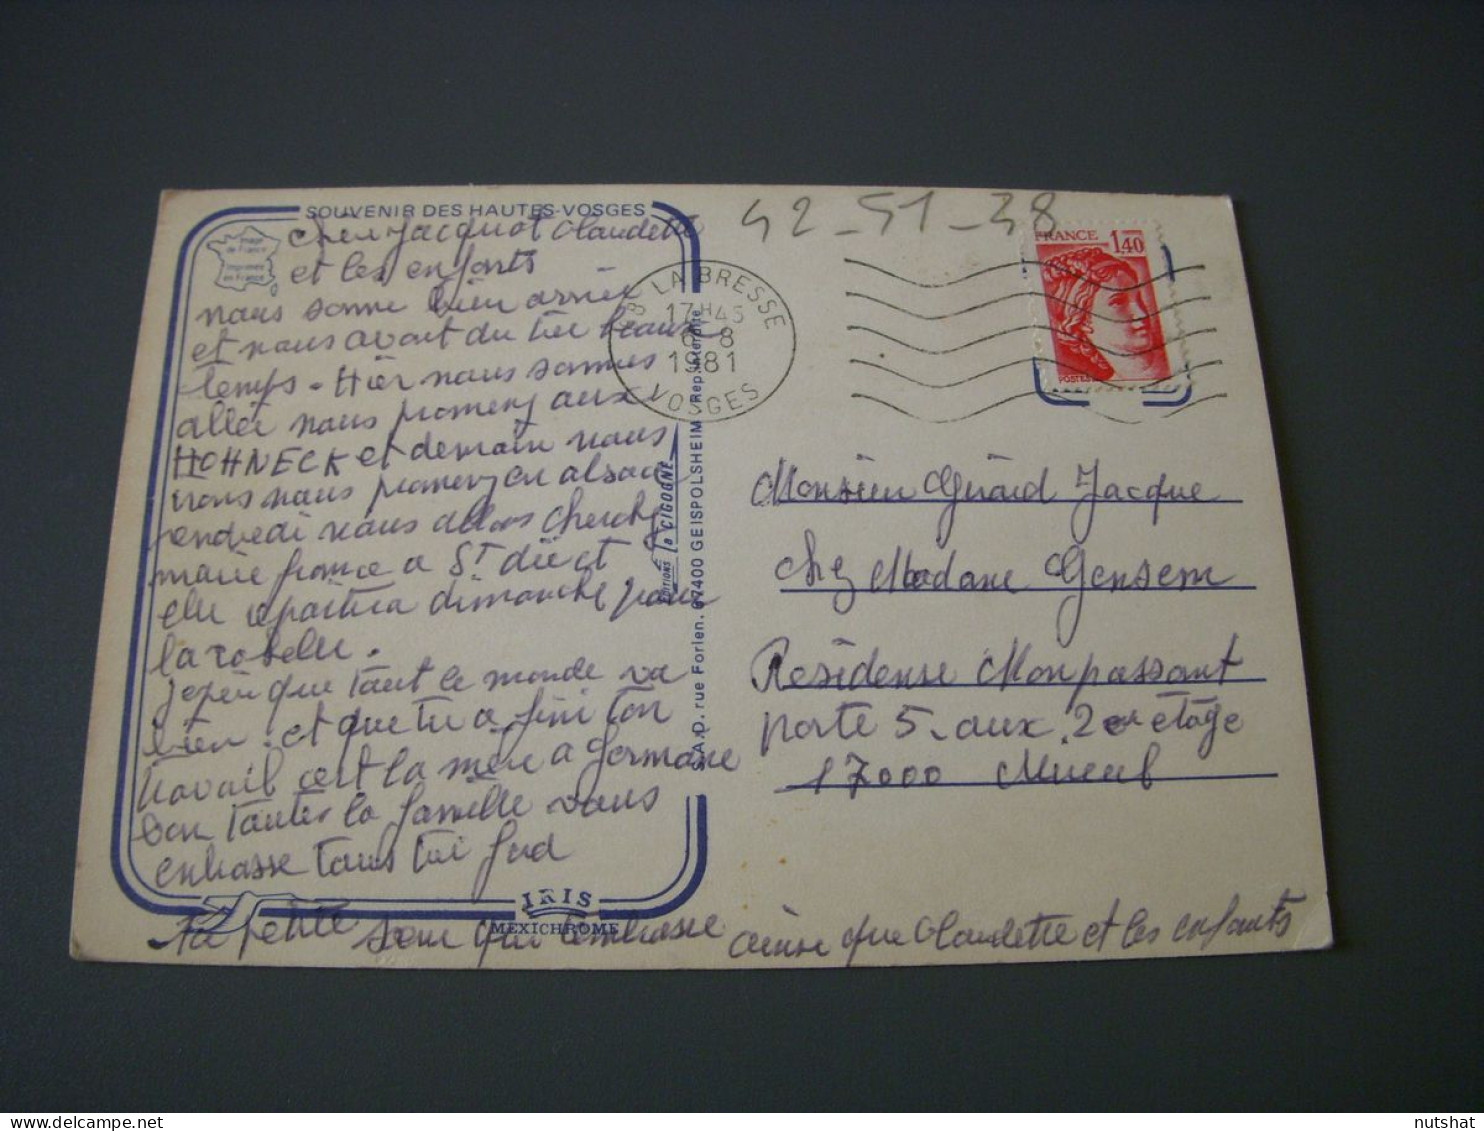 SOUVENIR DES HAUTES-VOSGES
Image
de France
Imprimée
en France
cher Jacquot Claudette
et les enfants
nous some bien arriée
et nous avont du tré beaux
temps - Hier nous sommes
aller nous promenez aux
HOHNECK et demain nous
irons nous promenez en alsace
vendredi nous allons cherche
marie france a St dié et
elle repartira dimanche pour
la
que tout le monde va
bien. et que tu a fini ton
travail cest la mère a Germaine
bon toutes la famille vous
enbrasse tous
Ta petite sœur qui t'embrasse ainse que Claudette et les enfants
IRIS
MEXICHROME
S.A.D. rue Forlen. 67400 GEISPOLSHEIM Rep. interdite
EDITIONS la CIGOGNE
42-51-38
88 LA BRESSE
17H45
6-8
1981
VOSGES
FRANCE 1,40
POSTES
Monsieur Gérard Jacque
chez Madame Gensem
Résidense Monpassant
porte 5. aux 2er étage
17000
nutshat